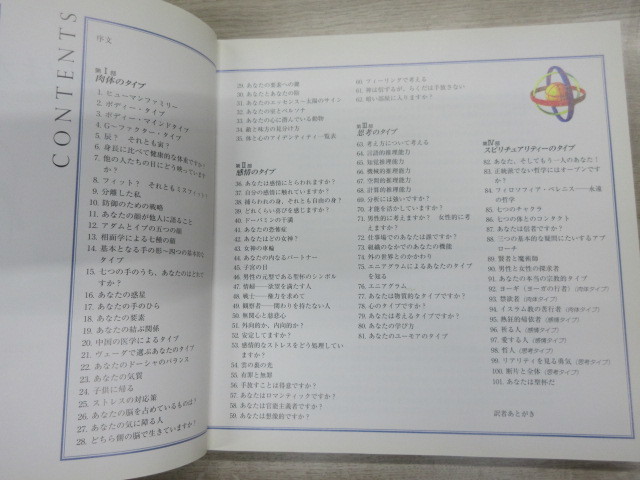 CONTENTS
序文
第I部
肉体のタイプ
1. ヒューマンファトリー
2. ボディー・タイプ
3. ボディー・マインドタイプ
4. G-ファクター・タイプ
5. 辰？ それとも寅？
6. 身長に比べて健康的な体重ですか？
7. 他の人たちの目にどう映っていますか？
8. フィット？ それともミスフィット？
9. 分離した私
10. 防御のための戦略
11. あなたの顔が他人に語ること
12. アダムとイブの五つの顔
13. 相面学による七種の顔
14. 基本となる手の形―四つの基本的なタイプ
15. 七つの手のうち、あなたのはどれですか？
16. あなたの惑星
17. あなたの手のひら
18. あなたの要素
19. あなたの結ぶ関係
20. 中国の医学によるタイプ
21. ヴェーダで選ぶあなたのタイプ
22. あなたのドーシャのバランス
23. あなたの気質
24. 子供に帰る
25. ストレスの対応策
26. あなたの脳を占めているものは？
27. あなたの気に障る人
28. どちら側の脳で生きていますか？
29. あなたの要素への鍵
30. あなたとあなたの影
31. あなたのエッセンス―太陽のサイン
32. あなたの姿とペルソナ
33. あなたの心に潜んでいる動物
34. 敵と味方の見分け方
35. 体と心のアイデンティティ一覧表
第II部
感情のタイプ
36. あなたは感情にとらわれますか？
37. 自分の感情に触れていますか？
38. 捕らわれの身、それとも自由の身？
39. どれくらい喜びを感じますか？
40. ドーパミンの干満
41. あなたの怠惰症
42. あなたはどの女神？
43. 女神の車輪
44. あなたの内なるパートナー
45. 子宮の日
46. 男性の元型である聖杯のシンボル
47. 情緒―欲望を満たす人
48. 戦士―権力を求めて
49. 観察者―関わりを持たない人
50. 無関心と慈悲心
51. 外向的か、内向的か？
52. 安定してますか？
53. 感情的なストレスをどう処理していますか？
54. 雲の裏の光
55. 有限と無限
56. 手放すことは得意ですか？
57. あなたはロマンティックですか？
58. あなたは官能主義者ですか？
59. あなたは想像的ですか？
60. フィーリングで考える
61. 舟は信ずるが、らくだは手放さない
62. 暗い部屋に入りますか？
第III部
思考のタイプ
63. 考え方について考える
64. 言語的推理能力
65. 知覚推理能力
66. 機械的推理能力
67. 空間的推理能力
68. 計算的推理能力
69. 分析には強いですか？
70. 才能を活かしていますか？
71. 男性的に考えますか？ 女性的に考えますか？
72. 仕事場でのあなたは誰ですか？
73. 組織のなかでのあなたの機能
74. 外の世界とのかかわり
75. エニアグラムによるあなたのタイプを知る
76. エニアグラム
77. あなたは物質的なタイプですか？
78. 心のタイプですか？
79. あなたは考えるタイプですか？
80. あなたの学び方
81. あなたのユーモアのタイプ
第IV部
スピリチュアリティーのタイプ
82. あなた、そしてもう一人のあなた！
83. 正統派でない哲学にはオープンですか？
84. フィロソフィア・ペレニス――永遠の哲学
85. 七つのチャクラ
86. 七つの体とのコンタクト
87. あなたは信者ですか？
88. 三つの基本的な質問にたいするアプローチ
89. 賢者と魔術師
90. 男性と女性の探求者
91. あなたの本当の宗教的タイプ
92. ヨーギ（ヨーガの行者）(肉体タイプ)
93. 禁欲者 (肉体タイプ)
94. イスラム教の苦行者 (肉体タイプ)
95. 熱狂的帰依者 (感情タイプ)
96. 祈る人 (感情タイプ)
97. 愛する人 (感情タイプ)
98. 哲人 (思考タイプ)
99. リアリティを見る勇気 (思考タイプ)
100. 断片と全体 (思考タイプ)
101. あなたは聖杯だ
訳者あとがき